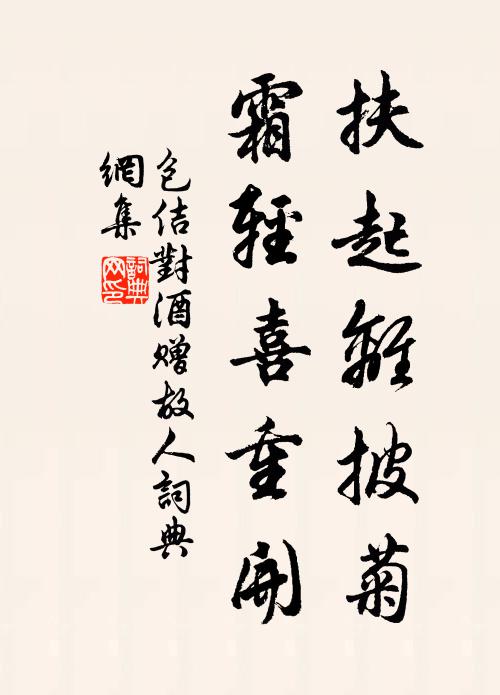 扶起離披菊
霜輕喜重開
包佶對酒赠故人詞典
網集
詞典
网印